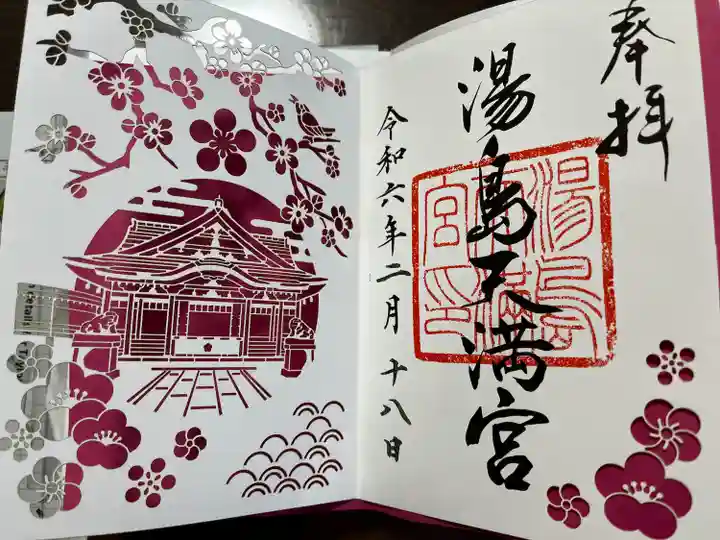 奉拝
湯島天満宮
湯島天満宮印
令和六年二月十八日